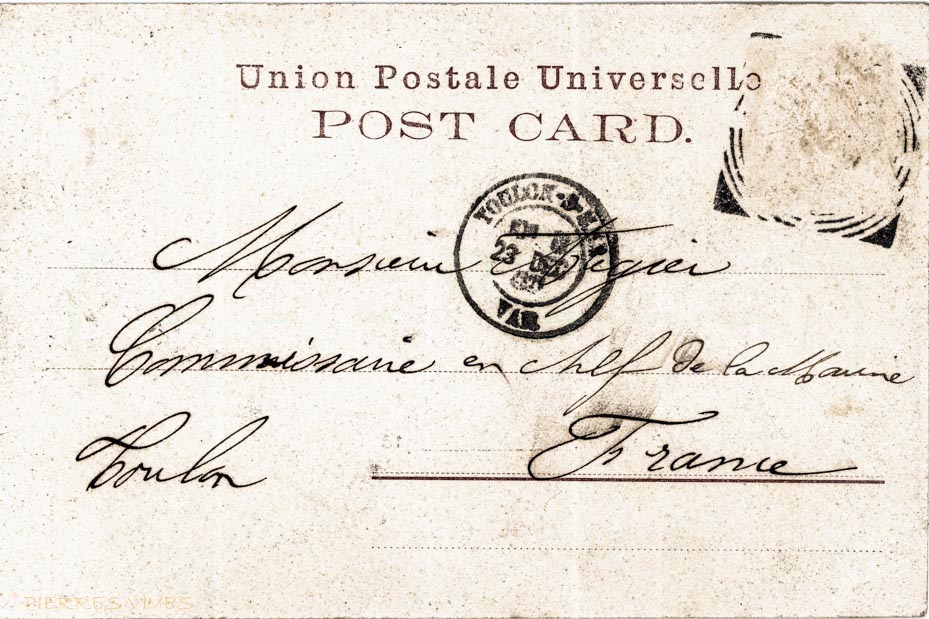 Union Postale Universelle
POST CARD.
TOULON-S-MER
23 DEC
VAR
Monsieur
Commissaire en chef de la Marine
Toulon
France
PIERRES VIVES